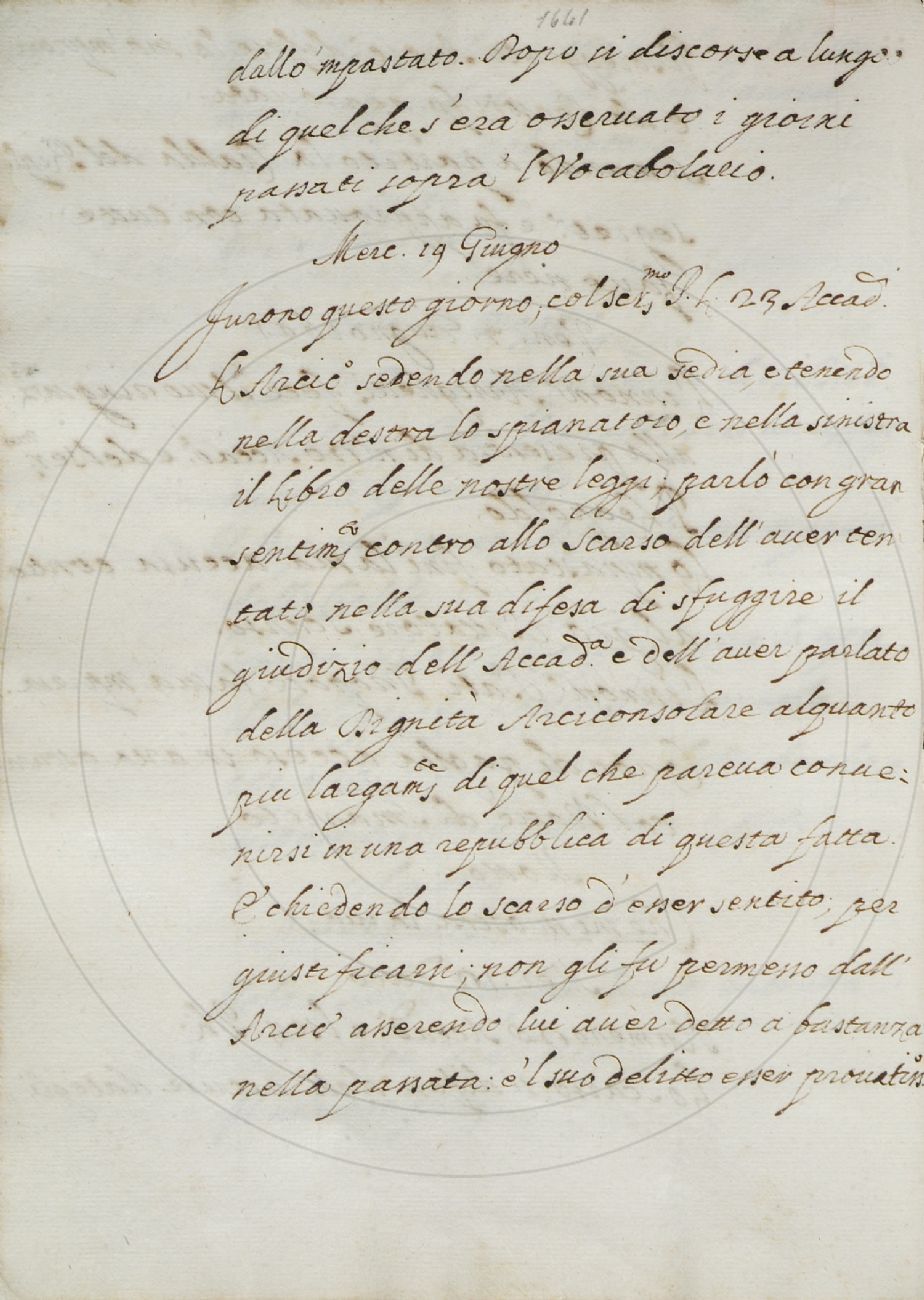 1641
dallo 'mpastato. Dopo si discorse a lungo
di quel che s'era osseruato i giorni
passati sopra 'l Vocabolario.
Merc. 19 Giugno
Furono questo giorno, col ser.mo P. L. 23 Accad.
L'Arcic.o sedendo nella sua sedia, e tenendo
nella destra lo spianatoio, e nella sinistra
il libro delle nostre leggi; parlò con gran
sentim.to contro allo scarso dell'auer ten
tato nella sua difesa di sfuggire il
giudizio dell'Accad.a e dell'auer parlato
della Dignità Arciconsolare alquanto
piu largam.te di quel che pareua conue:
nirsi in una repubblica di questa fatta.
E chiedendo lo scarso d'esser sentito, per
giustificarsi; non gli fu permesso dall'
Arcic.o asserendo lui auer detto a bastanza
nella passata: e 'l suo delitto esser